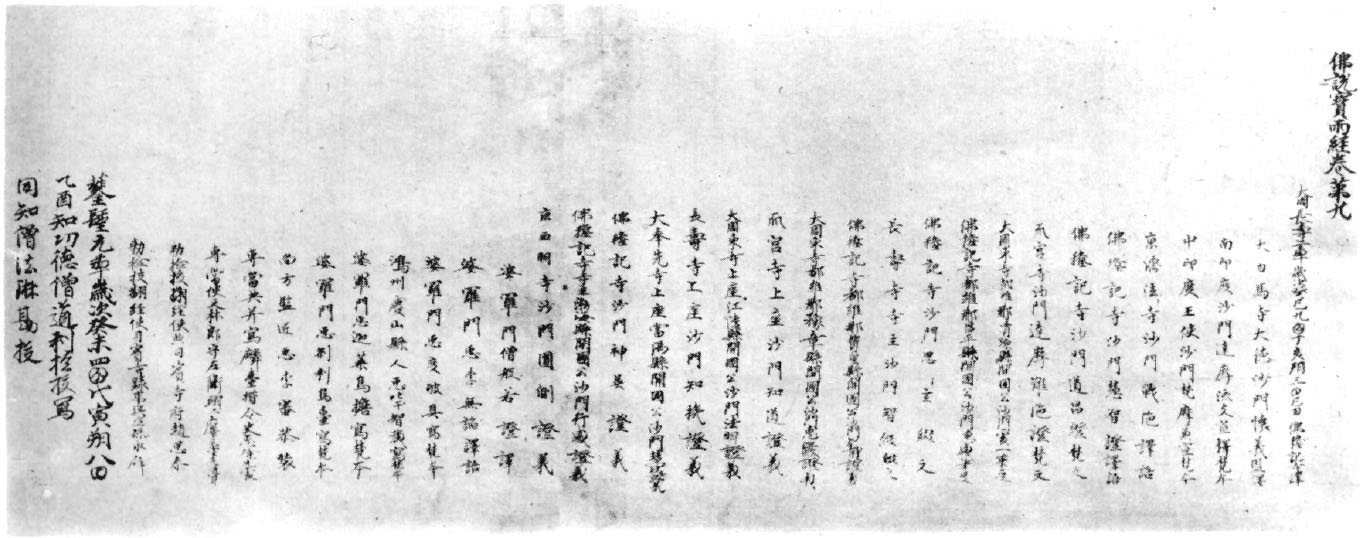 佛說寶雨經卷第九
大周長壽二年歲次癸巳九月丁亥朔三日己丑佛授記寺譯
大白馬寺大德沙門懷義監譯
南印度沙門達摩流支宣釋梵本
中印度王使沙門梵摩兼宣梵本
京濟法寺沙門戰陀譯語
佛授記寺沙門慧智證譯語
佛授記寺沙門道昌證梵文
天宮寺沙門達摩難陀證梵文
大周東寺都維那清源縣開國公沙門處一筆受
佛授記寺都維那昌平縣開國公沙門德感筆受
佛授記寺沙門思玄綴文
長壽寺寺主沙門智激綴文
佛授記寺都維那贊皇縣開國公沙門知靜證義
大周東寺都維那豫章縣開國公沙門惠儼證義
天宮寺上座沙門知道證義
大周東寺上座江陵縣開國公沙門法明證義
長壽寺上座沙門知機證義
大奉先寺上座當陽縣開國公沙門慧稜證義
佛授記寺沙門神英證義
佛授記寺寺主渤海縣開國公沙門行感證義
京西明寺沙門圓測證義
婆羅門僧般若證譯
婆羅門臣李無諂譯語
婆羅門臣度破具寫梵本
鴻州慶山縣人臣叱干智藏寫梵本
婆羅門臣迦葉烏擔寫梵本
婆羅門臣刹利烏臺寫梵本
尚方監匠臣李審恭裝
專當典并寫麟臺楷令史臣杜大賓
專當使文林郎守左衛翊二府兵曹
勅檢校翻經使典司賓寺府趙思泰
勅檢校翻經使司賓寺錄事孫承辟
證聖元年歲次癸未四月戊寅朔八日
乙酉知功德僧道利檢校寫
同知僧法琳勘校